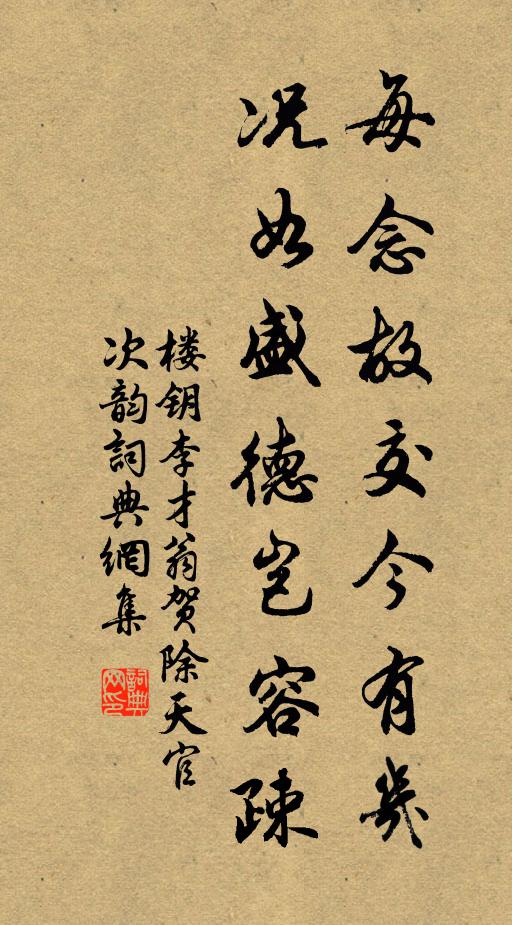 每念故交今有幾
况如盛德岂容疎
楼钥李才翁贺除天官
次韵詞典網集
詞典网印